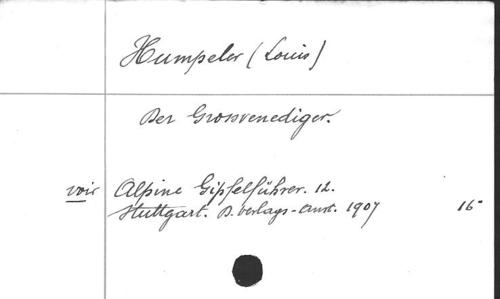 Humpeler (Louis)
Der Grossvenediger.
voir Alpine Gipfelführer. 12.
Stuttgart. D. Verlags-Anst. 1907 16°